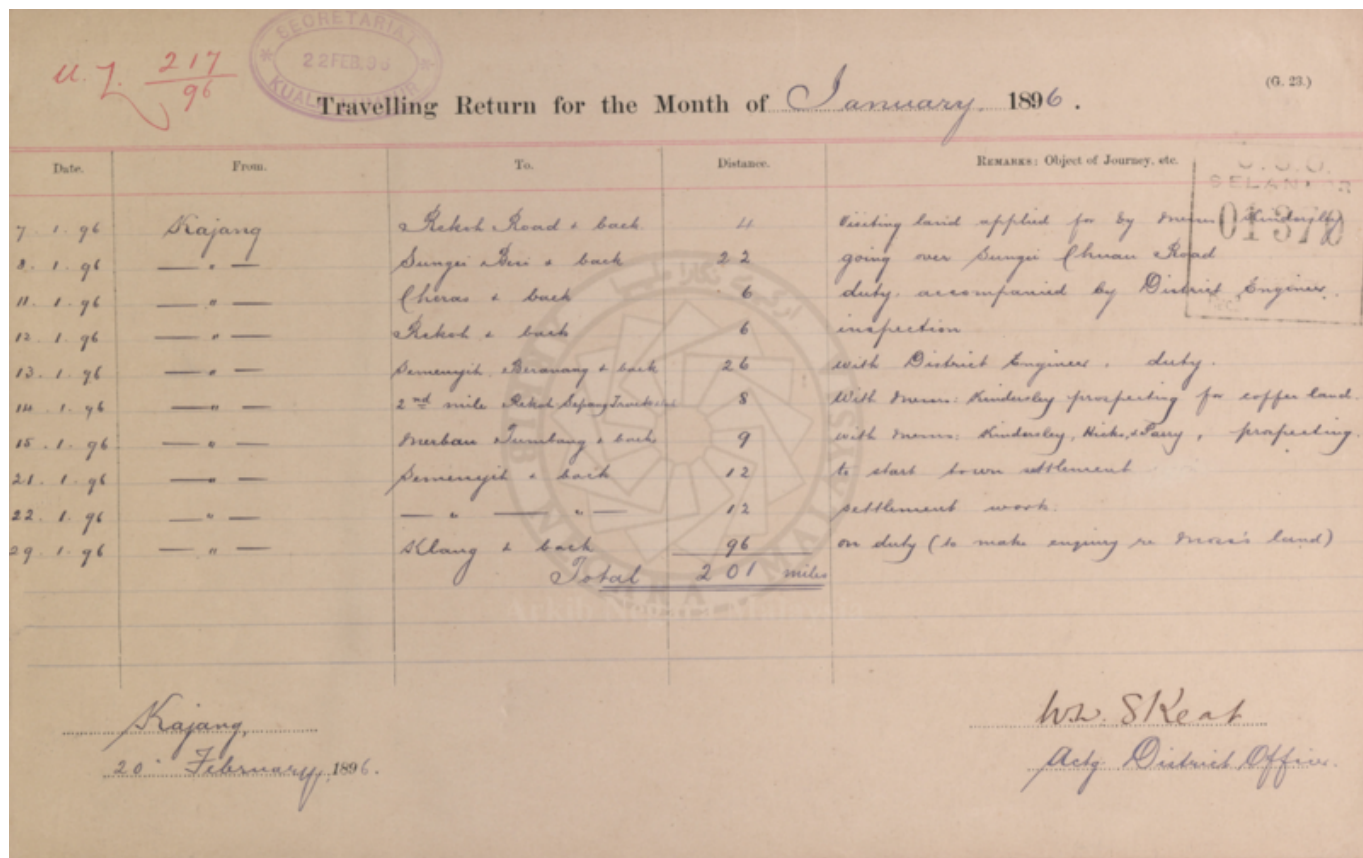 U.L. 217/96
SECRETARIAT
22 FEB. 96
KUALA LUMPUR
(G. 23.)
Travelling Return for the Month of January 1896.
Date. From. To. Distance. REMARKS: Object of Journey, etc.
SELANGOR
7.1.96 Kajang Rekoh Road & back 4 Visiting land applied for by Messrs Kindersley
8.1.96 — " — Sungei Besi & back 22 going over Sungei Chuau Road
11.1.96 — " — Cheras & back 6 duty. accompanied by District Engineer.
12.1.96 — " — Rekoh & back 6 inspection
13.1.96 — " — Semenyih, Beranang & back 26 with District Engineer, duty.
14.1.96 — " — 2nd mile Rekoh Sepang 8 With Messrs: Kindersley prospecting for coffee land.
15.1.96 — " — Merbau & back 9 with Messrs: Kindersley, Hicks, & Parry, prospecting.
21.1.96 — " — Semenyih & back 12 to start town settlement
22.1.96 — " — — " — " — 12 settlement work.
29.1.96 — " — Klang & back 96 on duty (to make enquiry re land)
Total 201 miles
Arkib Negara Malaysia
Kajang,
20 February, 1896.
W.W. Skeat
Actg District Officer.